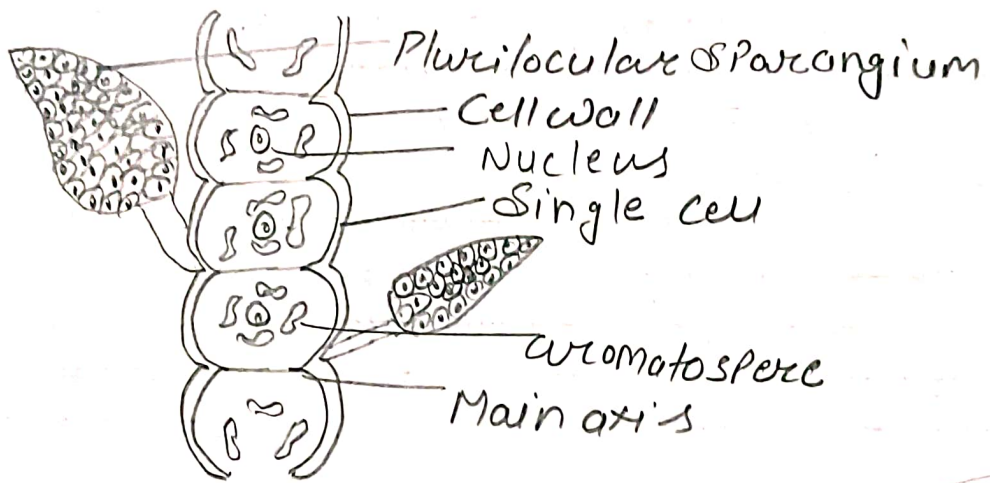 Plurilocular Sporangium
Cell wall
Nucleus
Single cell
cromatospere
Main axis